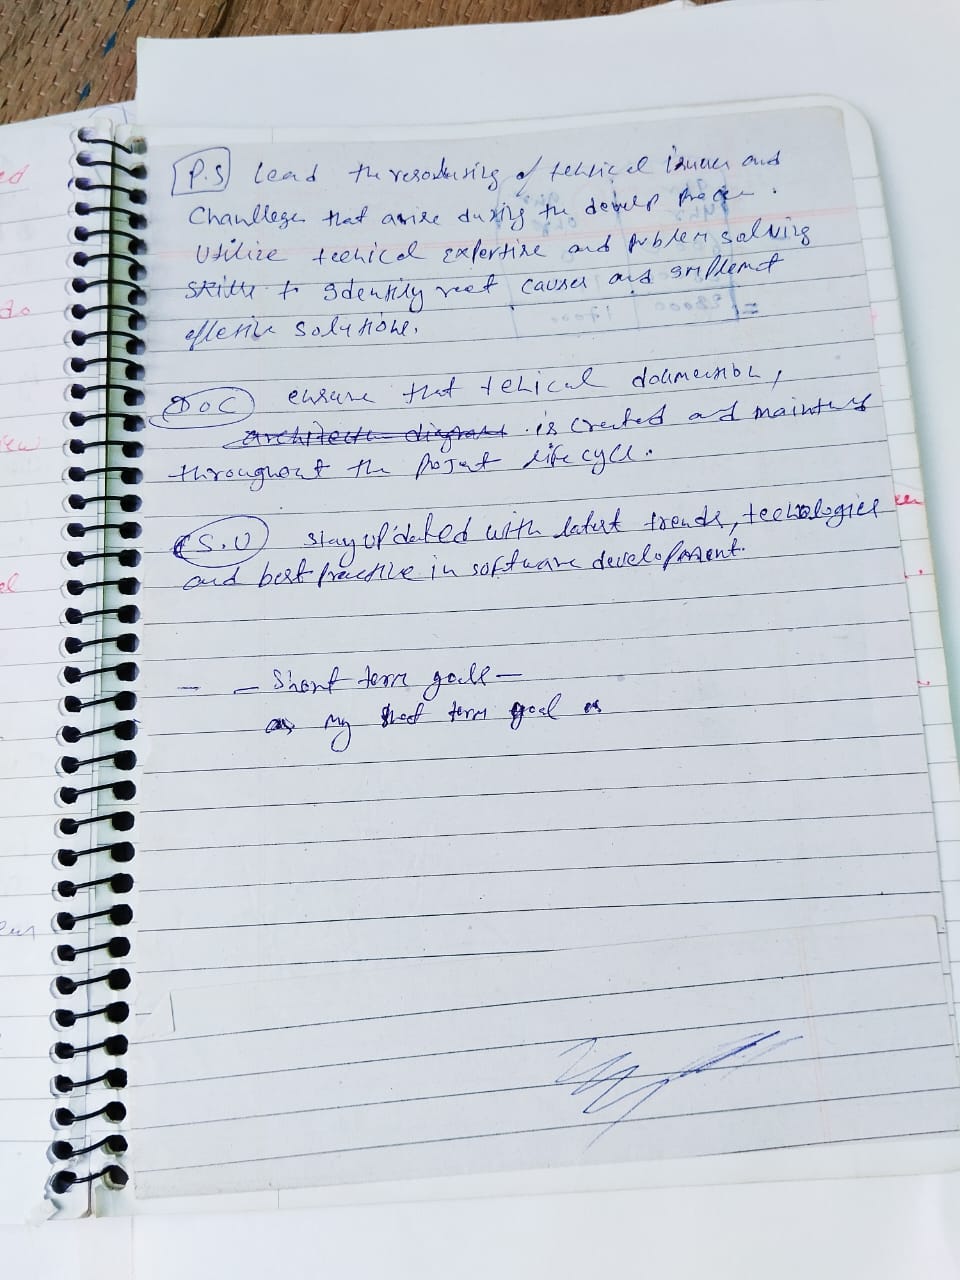 P.S Lead the resolusing of tehnical issues and
Chanlleges that arise during the develop proce.
Utilize techical expertise and problem solving
skills to identify root causes and implemet
effective solutions.
DOC ensure that tehical documension,
architectu diagrams is created and maintens
throughout the Projet life cycle.
S.U stay updated with latest trends, technologies
and best practice in software development.
- - Short term goals -
as my short term goal is